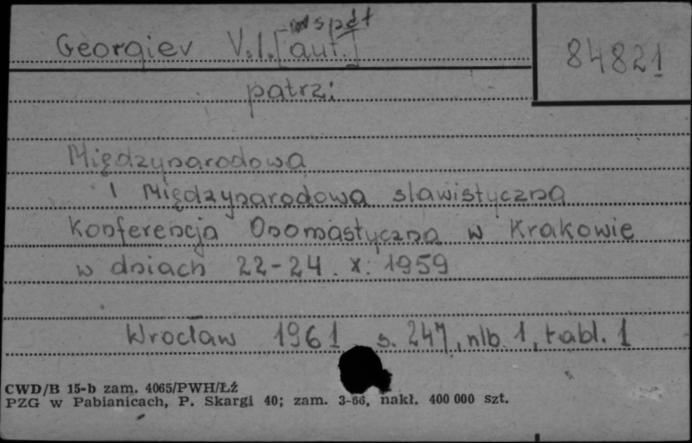 Georgiev V.I. [współ aut.]
84821
patrz:
Międzynarodowa
I Międzynarodowa slawistyczna
Konferencja Onomastyczna w Krakowie
w dniach 22-24. X. 1959
Wrocław 1961 s. 247, nlb. 1, tabl. 1
CWD/B 15-b zam. 4065/PWH/ŁŻ
PZG w Pabianicach, P. Skargi 40; zam. 3-66, nakł. 400 000 szt.